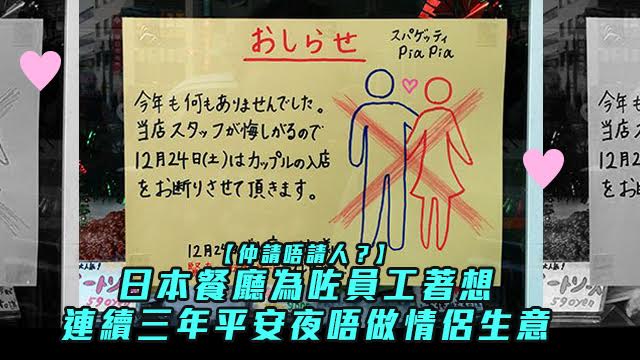 おしらせ
スパゲッティ
Pia Pia
今年も何もありませんでした。
当店スタッフが悔しがるので
12月24日(土)はカップルの入店
をお断りさせて頂きます。
12月24
【仲請唔請人？】
日本餐廳為咗員工著想
連續三年平安夜唔做情侶生意
ートソース
590yen